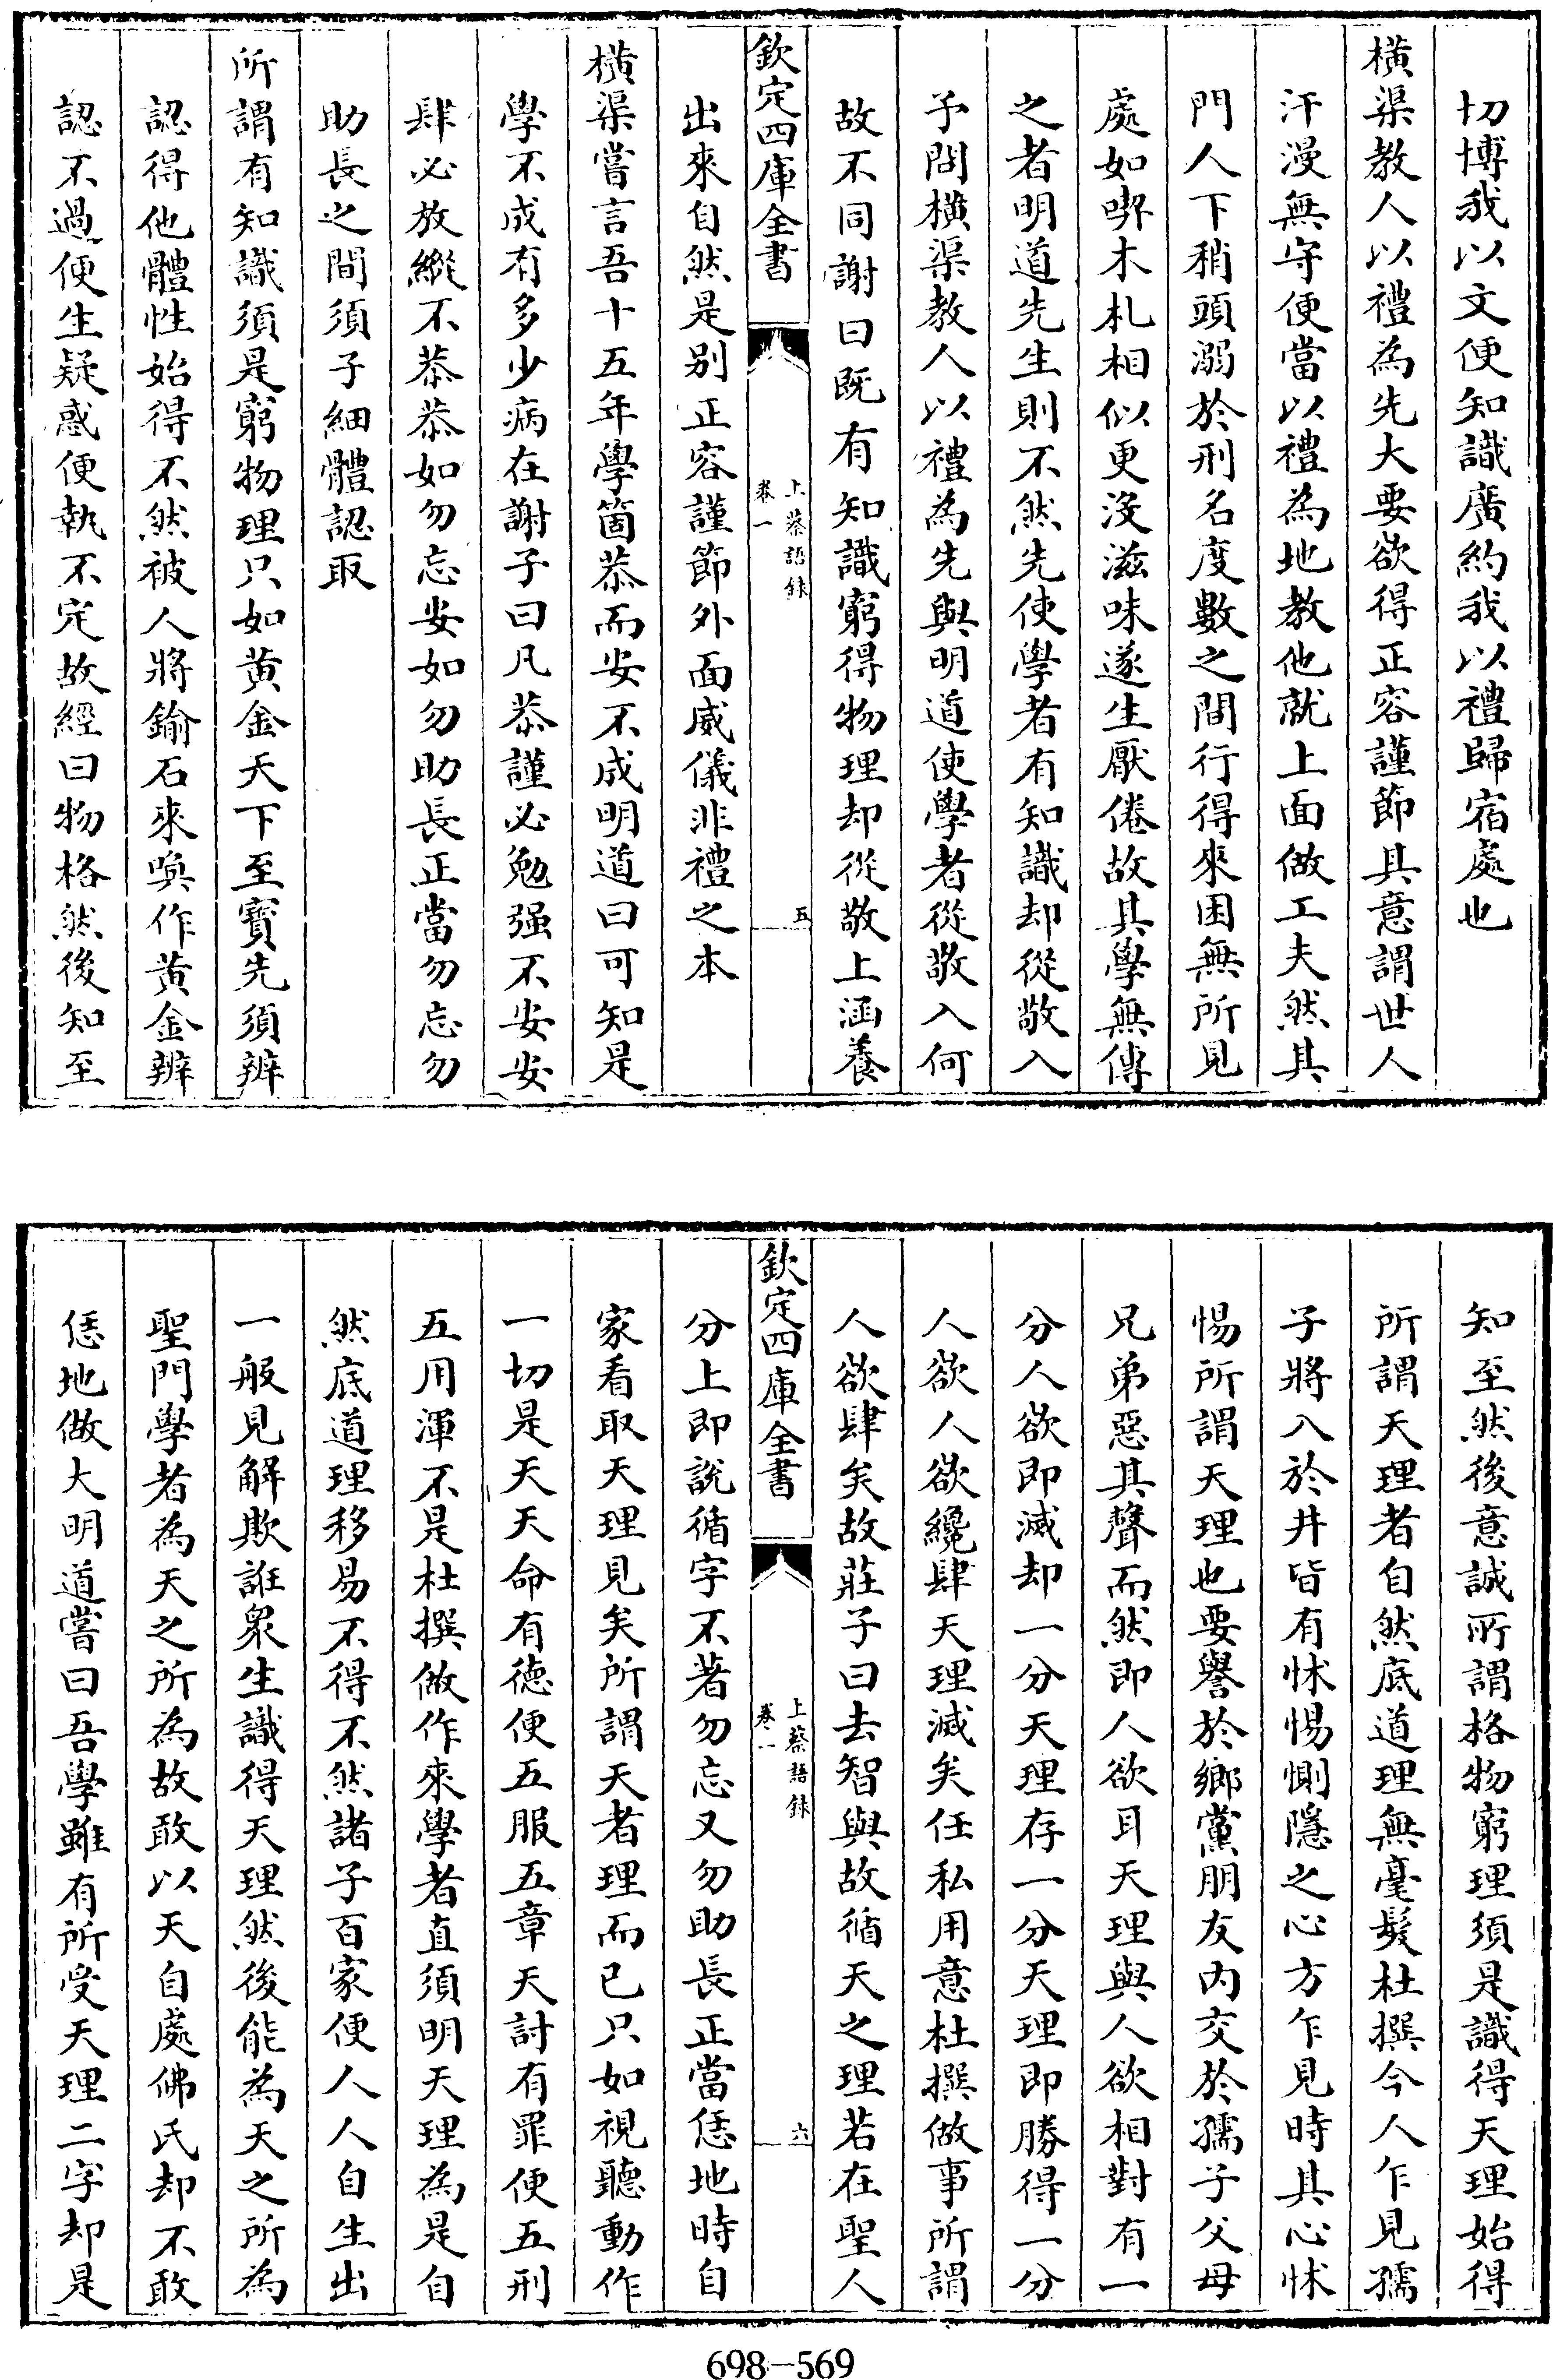 切博我以文便知識廣約我以禮歸宿處也
橫渠教人以禮為先大要欲得正容謹節其意謂世人
汗漫無守便當以禮為地教他就上面做工夫然其
門人下稍頭溺於刑名度數之間行得來困無所見
處如喫木札相似更沒滋味遂生厭倦故其學無傳
之者明道先生則不然先使學者有知識却從敬入
予問橫渠教人以禮為先與明道使學者從敬入何
故不同謝曰既有知識窮得物理却從敬上涵養
欽定四庫全書
上蔡語録
卷一
五
出來自然是别正容謹節外面威儀非禮之本
橫渠嘗言吾十五年學箇恭而安不成明道曰可知是
學不成有多少病在謝子曰凡恭謹必勉强不安安
肆必放縱不恭恭如勿忘安如勿助長正當勿忘勿
助長之間須子細體認取
所謂有知識須是窮物理只如黄金天下至寶先須辨
認得他體性始得不然被人將鍮石來喚作黄金辨
認不過便生疑惑便執不定故經曰物格然後知至
知至然後意誠所謂格物窮理須是識得天理始得
所謂天理者自然底道理無毫髮杜撰今人乍見孺
子將入於井皆有怵惕惻隱之心方乍見時其心怵
惕所謂天理也要譽於鄉黨朋友内交於孺子父母
兄弟惡其聲而然即人欲耳天理與人欲相對有一
分人欲即滅却一分天理存一分天理即勝得一分
人欲人欲纔肆天理滅矣任私用意杜撰做事所謂
人欲肆矣故莊子曰去智與故循天之理若在聖人
欽定四庫全書
上蔡語録
卷一
六
分上即說循字不著勿忘又勿助長正當恁地時自
家看取天理見矣所謂天者理而已只如視聽動作
一切是天天命有德便五服五章天討有罪便五刑
五用渾不是杜撰做作來學者直須明天理為是自
然底道理移易不得不然諸子百家便人人自生出
一般見解欺誑衆生識得天理然後能為天之所為
聖門學者為天之所為故敢以天自處佛氏却不敢
恁地做大明道嘗曰吾學雖有所受天理二字却是
698-569